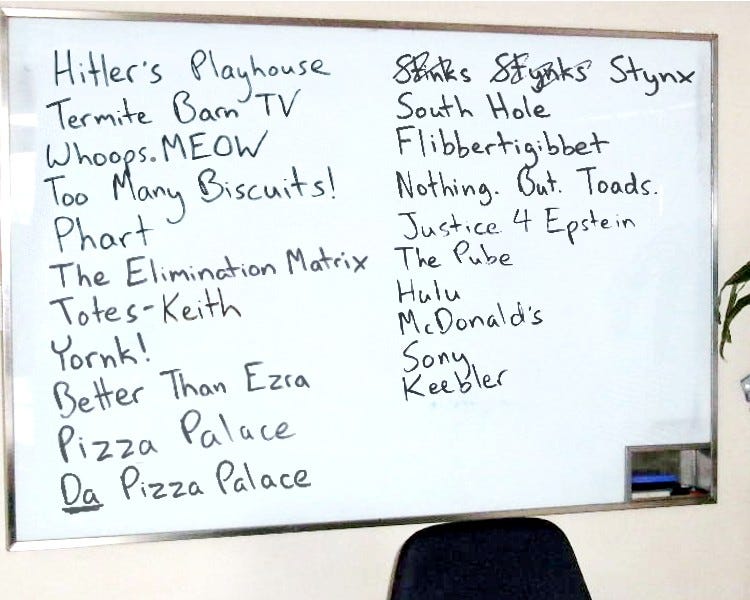 Hitler's Playhouse
Termite Barn TV
Whoops.MEOW
Too Many Biscuits!
Phart
The Elimination Matrix
Totes-Keith
Yornk!
Better Than Ezra
Pizza Palace
Da Pizza Palace
Stinks Stynks Stynx
South Hole
Flibbertigibbet
Nothing. But. Toads.
Justice 4 Epstein
The Pube
Hulu
McDonald's
Sony
Keebler